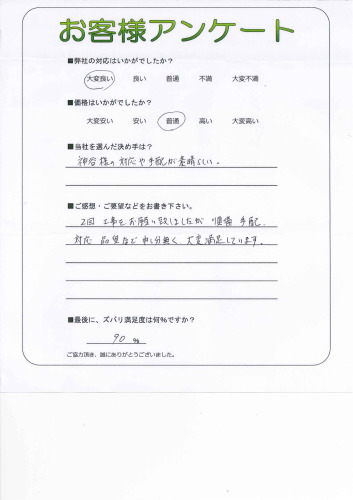 お客様アンケート
■弊社の対応はいかがでしたか？
大変良い 良い 普通 不満 大変不満
■価格はいかがでしたか？
大変安い 安い 普通 高い 大変高い
■当社を選んだ決め手は？
神谷様の対応や手配が素晴らしい。
■ご感想・ご要望などをお書き下さい。
2回 工事をお願い致しましたが 準備 手配
対応 品質など申し分無く、大変満足しています。
■最後に、ズバリ満足度は何%ですか？
90 %
ご協力頂き、誠にありがとうございました。